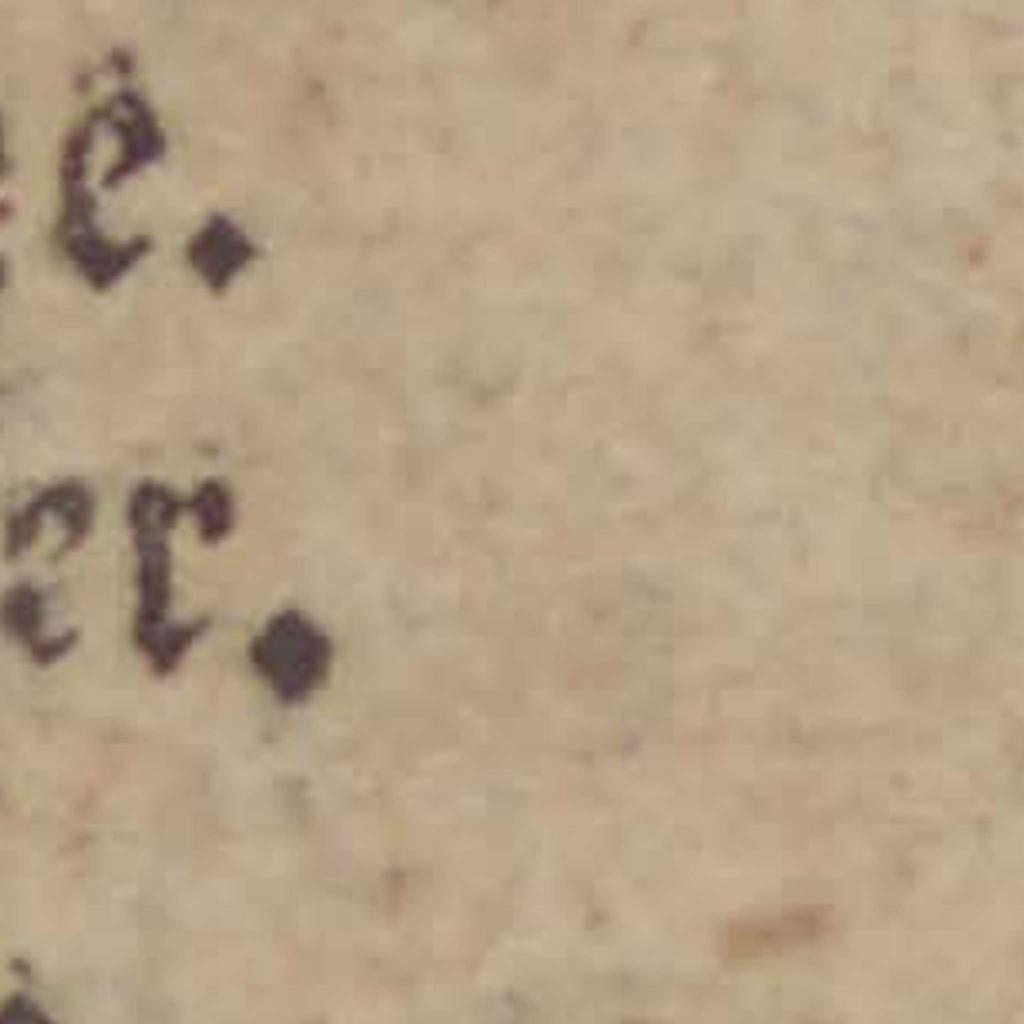 e.
er.